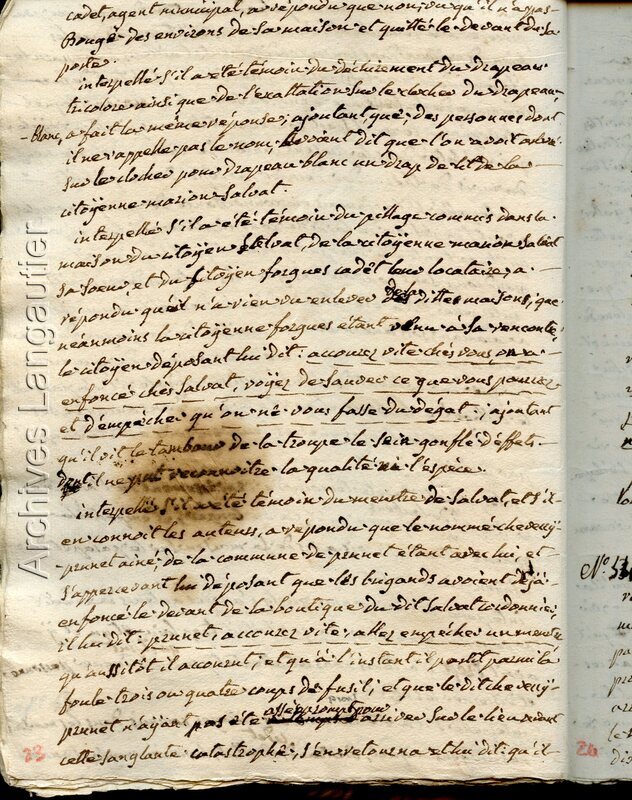 cadet, agent municipal, a répondu que non, vu qu'il n'a pas
Bougé des environs de sa maison et quitté le devant de sa
porte.
interpellé s'il a été témoin du déchirement du drapeau
tricolore ainsi que de l'exaltation sur le clocher du drapeau
- blanc, a fait la même réponse; ajoutant, que, des personnes dont
il ne rappelle pas le nom, avoient dit que l'on avoit arboré
sur le clocher pour drapeau blanc un drap de lit de la
citoyenne marion Salvat.
interpellé s'il a été témoin du pillage commis dans la
maison du citoyen Salvat, de la citoyenne marion Salvat
sa soeur et du citoyen forgues cadèt leur locataire, a
répondu qu'il n'a rien vu enlever de la dittes maisons, que
néanmoins la citoyenne forgues étant venu à sa rencontre,
le citoyen déposant lui dit: accourez vite chés vous, on a
enfoncé chés Salvat, voyez de sauver ce que vous pourrez
et d'empécher qu'on ne vous fasse du dégat; ajoutant
qu'il vit le tambour de la troupe le sein gonflé d'effets
dont il ne put reconnoitre la qualité ni l'espèce.
interpellé s'il a été témoin du meurtre de Salvat, et s'il
en connoit les auteurs, a répondu que le nommé
prunet ainé, de la commune de prunet étant avec lui, et
s'appercevant lui déposant que les brigands avoient déjà
enfoncé le devant de la boutique du dit Salvat cordonnier,
il lui dit: prunet, accourez vite, allez empécher un meurtre
qu'aussitôt il accourut, et qu'à l'instant il partit parmi la
foule trois ou quatre coups de fusil; et que le dit
prunet n'ayant pas été assés prompt pour arriver sur le lieu avant
cette sanglante catastrophe, s'en retourna et lui dit qu'il
23
26
N° 53
Archives Langautier